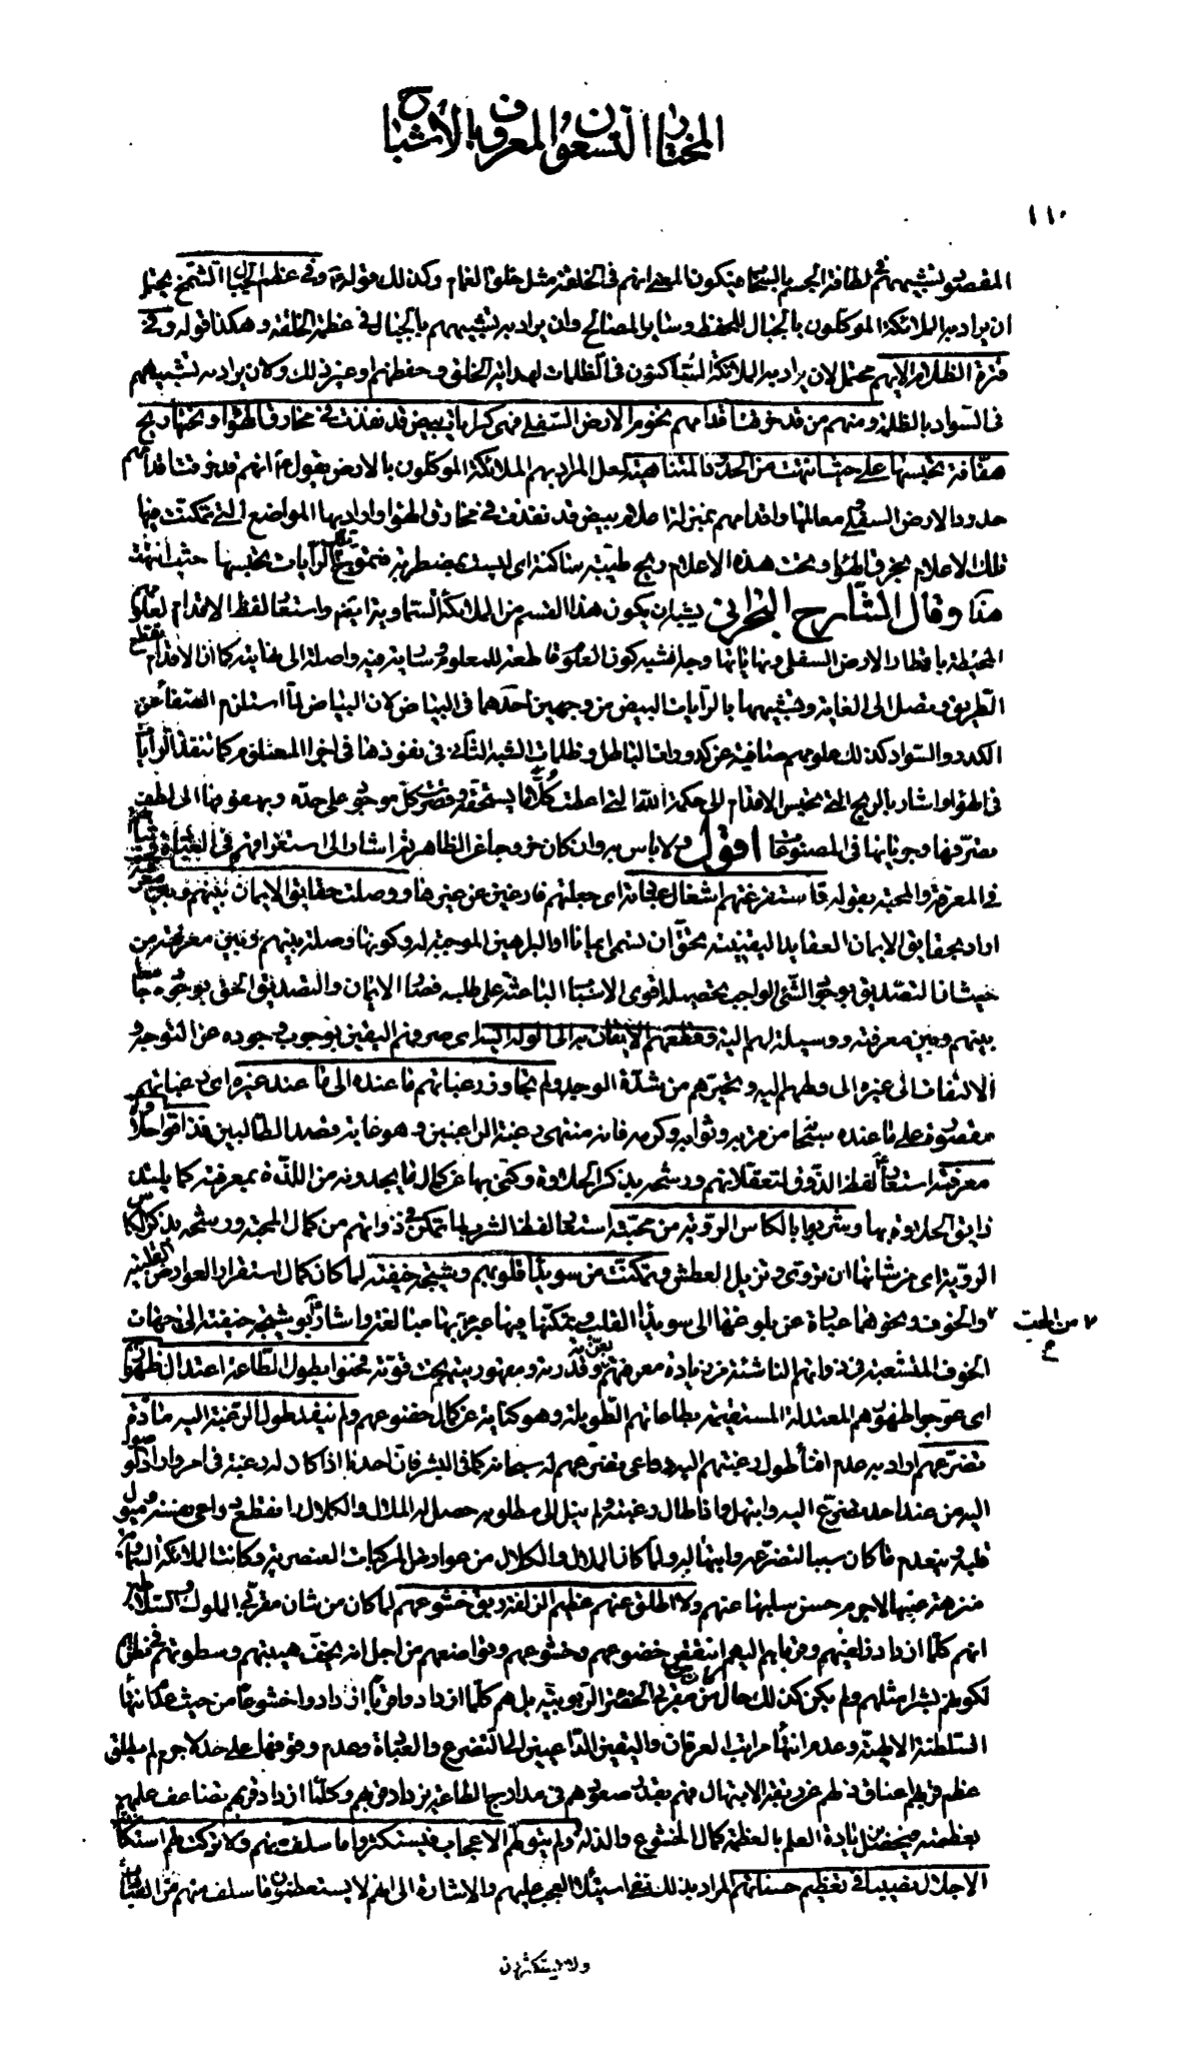 المختار التسعون المعروف بالأشباح
١١٠
المقصود تشبيههم في لطافة الجسم بالسحاب فيكون المعنى انهم في الخلقة مثل خلق الغمام وكذلك قوله وفي عظم الجبال الشمخ يحتمل
ان يراد به الملائكة الموكلون بالجبال للحفظ وساير المصالح وان يراد به تشبيههم بالجبال في عظم الخلقة وهكذا قوله وفي
قترة الظلام الايهم محتمل لان يراد به الملائكة الساكنون في الظلمات لهداية الخلق وحفظهم او غير ذلك وكان يراد به تشبيههم
في السواد بالظلمة ومنهم من قد خرقت اقدامهم تخوم الارض السفلى فهي كرايات بيض قد نفذت في مخارق الهواء وتحتها ريح
هفافة تحبسها على حيث انتهت من الحدود المتناهية لعل المراد بهم الملائكة الموكلون بالارض يقول انهم قد خرقت اقدامهم
حدود الارض السفلى معالمها واقدامهم بمنزلة اعلام بيض قد نفذت في مخارق الهواء واراد بها المواضع التي تمكنت فيها
تلك الاعلام بخرق الهواء وتحت هذه الاعلام ريح طيبة ساكنة اى ليست بمضطربة فتموج تلك الرايات تحبسها حيث انتهت
هذا وقال الشارح البحراني يشبه ان يكون هذا القسم من الملائكة السماوية ايضم واستعار لفظ الاقدام لعلومهم
المحيطة باقطار الارض السفلى ونهاياتها وجه المشابهة كون العلوم قاطعة للمعلوم وسارية فيه واصلة الى نهايته كما ان الاقدام تقطع
الطريق وتصل الى الغاية وتشبيهها بالرايات البيض من وجهين احدهما في البياض لان البياض لما استلزم الصفاء عن
الكدر والسواد كذلك علومهم صافية عن كدورات الباطل وظلمات الشبه الثاني في نفوذها في اجزاء المعلوم كما تنفذ الرايات
في الهواء واشار بالريح التي تحبس الاقدام الى حكمة الله التي اعطت كلا ما يستحقه وقصرت كل موجود على حده وبهفوفها الى لطف
تصرفها وجريانها في المصنوعات اقول ولا باس به وان كان خروجا عن الظاهر ثم اشار الى استغراقهم في العبادة
في المعرفة والمحبة بقوله قد استفرغتهم اشغال عبادته اى جعلتهم فارغين عن غيرها ووصلت حقايق الايمان بينهم وبين معرفته
اراد بحقايق الايمان العقايد اليقينية بحق ان تسمى ايمانا او البراهين الموجبة له وكونها وصلة بينهم وبين معرفته من
حيث ان التصديق بوجود الشئ الواجب تحصيله اقوى الاسباب الباعثة على طلبه فصار الايمان والتصديق الحق بوجوده جامعا
بينهم وبين معرفته ووسيلة لهم اليه وقطعهم الايقان به الى الوله اليه اى صرفهم اليقين بوجوب وجوده عن التوجه و
الالتفات الى غيره الى ولههم اليه وتحيرهم من شدة الوجد ولم تجاوز رغباتهم ما عنده الى ما عند غيره اى رغباتهم
مقصورة على ما عنده سبحانه من قربه وثوابه وكرمه فانه منتهى رغبة الراغبين وهو غاية قصد الطالبين قد ذاقوا حلاوة
معرفته استعار لفظ الذوق لتعقلاتهم ورشحه بذكر الحلاوة وكنى بها عن كمال ما يجدونه من اللذة بمعرفته كما يلتذ
ذايق الحلاوة بها وشربوا بالكاس الروية من محبته استعار لفظ الشرب لما تمكن في ذواتهم من كمال المحبة ورشحه بذكر الكاس
الروية اى من شانها ان تروى وتزيل العطش وتمكنت من سويداء قلوبهم وشيجة خيفته لما كان كمال استقرار العوارض القلبية
٧ من الحب
والخوف ونحوهما عبارة عن بلوغها الى سويداء القلب وتمكنها فيها عبر بها مبالغة واشار بوشيجة خيفته الى جهات
الخوف المنشعبة في ذواتهم الناشئة من زيادة معرفتهم بعزته وقدرته ومقهوريتهم تحت قوته فحنوا بطول الطاعة اعتدال ظهورهم
اى عوجوا ظهورهم المعتدلة المستقيمة بطاعاتهم الطويلة وهو كناية عن كمال خضوعهم ولم ينفد طول الرغبة اليه مادة
تضرعهم اراد به عدم افناء طول رغبتهم اليه دواعى تضرعهم له سبحانه كما في البشر فان احدنا اذا كان له رغبة في امر واراد الوصول
اليه من عند احد تضرع اليه وابتهل واذا طال رغبته ولم ينل الى مطلوبه حصل له الملال والكلال وانقطع دواعى نفسه وميول
قلبه وينعدم ما كان سببا لتضرعه وابتهاله ولما كان الملال والكلال من عوارض المركبات العنصرية وكانت الملائكة السماوية
منزهة عنها لاجرم حسن سلبها عنهم ولا اطلق عنهم عظيم الزلفة ربق خشوعهم لما كان من شان مقربى الملوك والسلاطين
انهم كلما ازدادوا زلفيهم وقربهم اليهم انتقص خضوعهم وخشوعهم وتواضعهم من اجل انه يخف هيبتهم وسطوتهم في نظرهم
لكونهم بشرا مثلهم ولم يكن كذلك حال من مقربى الحضرة الربوبية بل هم كلما ازدادوا قربا ازدادوا خشوعا من حيث
السلطنة الالهية وعدم انتهاء مراتب العرفان واليقين الداعيين الى التضرع والعبادة وعدم وقوفها على حد لاجرم لم يطلق
عظم قربهم اعناق ذلهم عن ربقة الابتهال فهم بقدر صعودهم في مدارج الطاعة يزداد قربهم وكلما ازداد قربهم تضاعف علمهم
بعظمته فيحصل بزيادة العلم بالعظمة كمال الخشوع والذلة ولم يتولهم الاعجاب فيستكثروا ما سلف منهم ولا تركت لهم استكانة
الاجلال نصيبا في تعظيم حسناتهم المراد بذلك نفى استيلاء العجب عليهم والاشارة الى انهم لا يستعظمون ما سلف منهم من العبادة
ولا يستكثرون